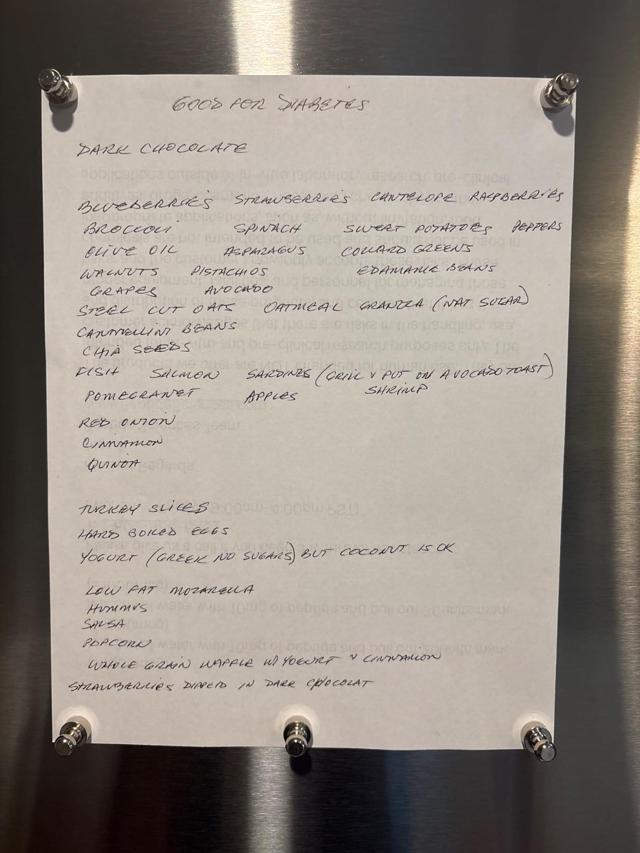 GOOD FOR DIABETES
DARK CHOCOLATE
BLUEBERRIES STRAWBERRIES CANTELOPE RASPBERRIES
BROCCOLI SPINACH SWEET POTATOES PEPPERS
OLIVE OIL ASPARAGUS COLLARD GREENS
WALNUTS PISTACHIOS EDAMAME BEANS
GRAPES AVOCADO
STEEL CUT OATS OATMEAL GRANOLA (NAT SUGAR)
CANNELLINI BEANS
CHIA SEEDS
FISH SALMON SARDINES (GRILL & PUT ON AVOCADO TOAST)
POMEGRANET APPLES SHRIMP
RED ONION
CINNAMON
QUINOA
TURKEY SLICES
HARD BOILED EGGS
YOGURT (GREEK NO SUGARS) BUT COCONUT IS OK
LOW FAT MOZARELLA
HUMMUS
SALSA
POPCORN
WHOLE GRAIN WAFFLE W/ YOGURT & CINNAMON
STRAWBERRIES DIPPED IN DARK CHOCOLAT